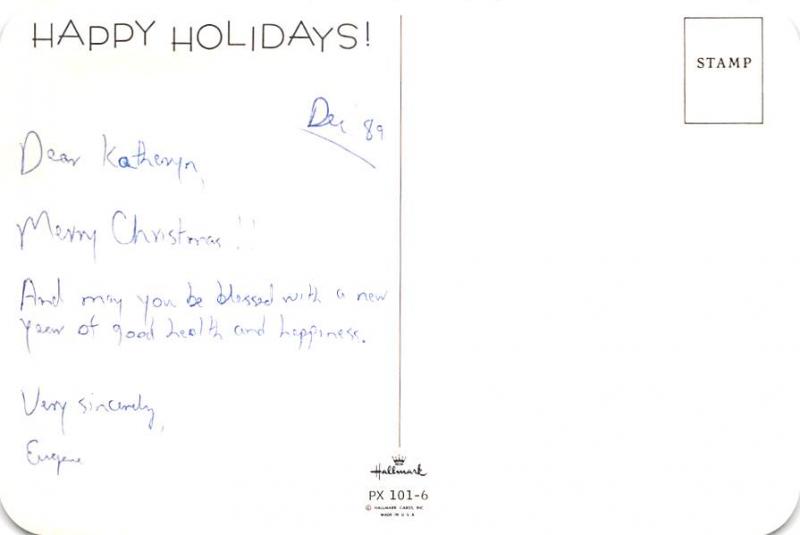 HAPPY HOLIDAYS!
STAMP
Dec '89
Dear Katheryn,
Merry Christmas!!
And may you be blessed with a new
year of good health and happiness.
Very sincerely,
Eugene
Hallmark
PX 101-6
© HALLMARK CARDS, INC.
MADE IN U.S.A.